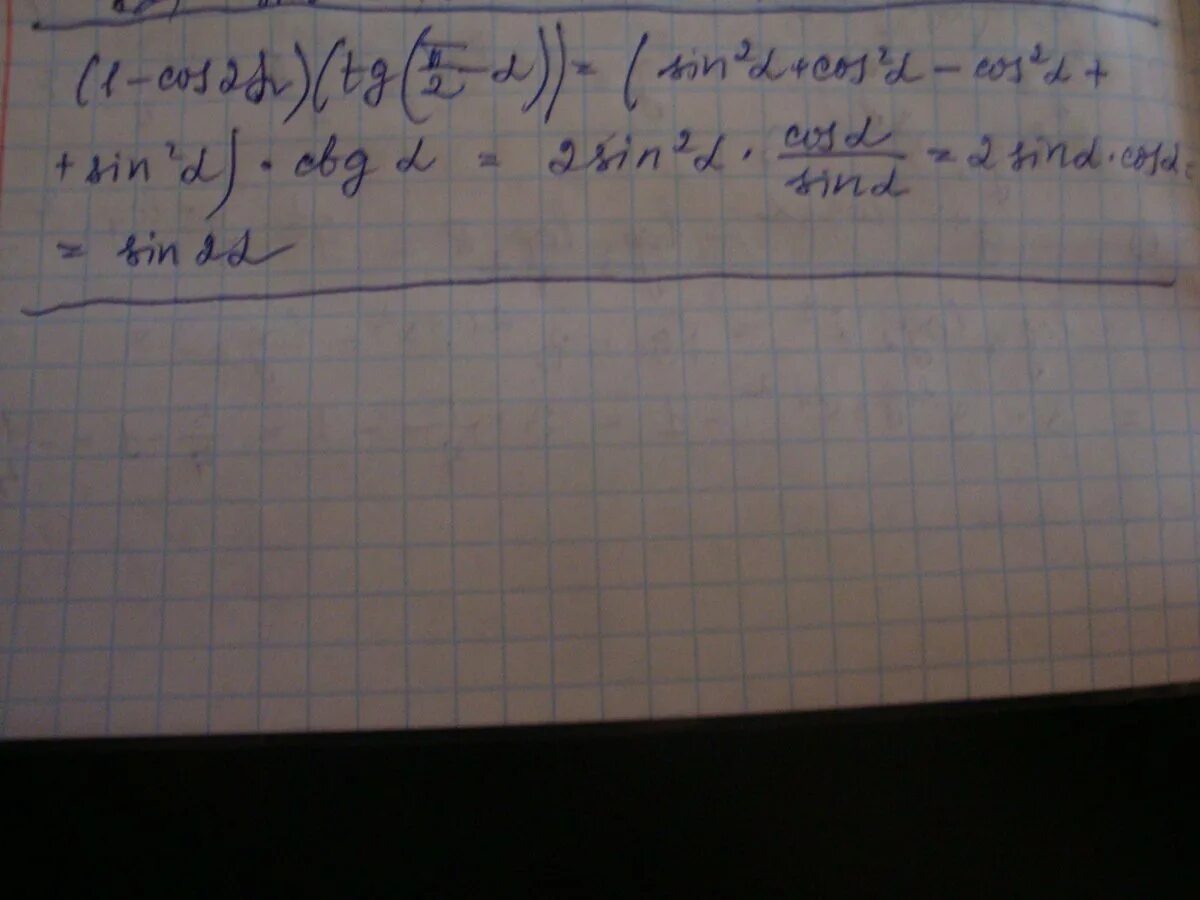 (1-cos2α)(tg(π/2-α))=(sin²α+cos²α-cos²α+
+sin²α)·ctg α = 2sin²α·cosα/sinα=2sinα·cosα=
= sin2α